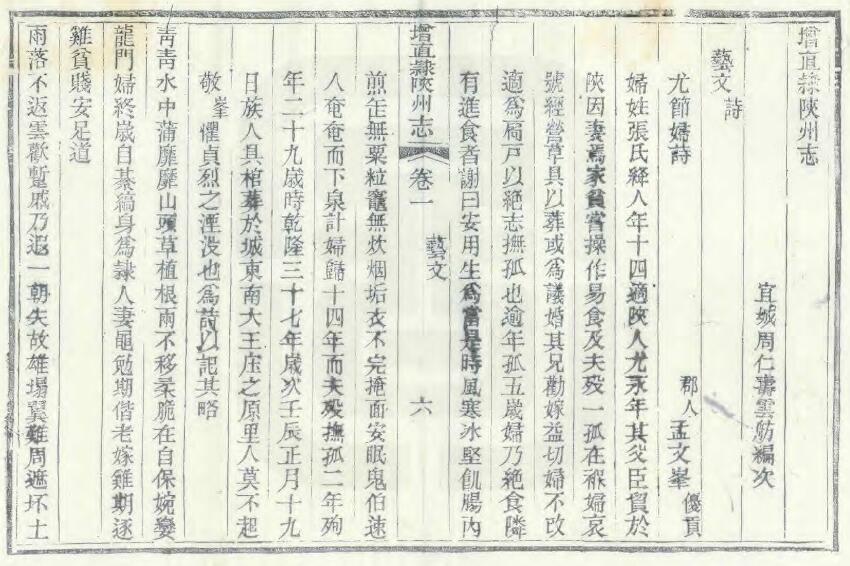 增直隸陜州志
宜城周仁壽雲舫編次
藝文 詩
尤節婦詩 郡人孟文峯優貢
婦姓張氏絳人年十四適陜人尤永年其父臣貿於
陜因妻焉家貧嘗操作易食及夫歿一孤在襁婦哀
號經營草具以葬或為議婚其兄勸嫁益切婦不改
適為槁戸以絶志撫孤也逾年孤五歲婦乃絶食隣
有進食者謝曰安用生為當是時風寒冰堅飢腸內
煎缶無粟粒竈無炊烟垢衣不完掩面安眠鬼伯速
人奄奄而下泉計婦歸十四年而夫歿撫孤二年殉
年二十九歲時乾隆三十七年歲次壬辰正月十九
日族人具棺葬於城東南大王庄之原里人莫不起
敬峯懼貞烈之湮没也為詩以記其略
靑靑水中蒲靡靡山頭草植根雨不移柔脆在自保婉孌
龍門婦終歲自綦縞身為隷人妻黽勉期偕老嫁雞期逐
雞貧賤安足道
雨落不返雲歡蹔戚乃遐一朝失故雄塌翼難周遮坏土
增直隸陜州志 卷一 藝文 六